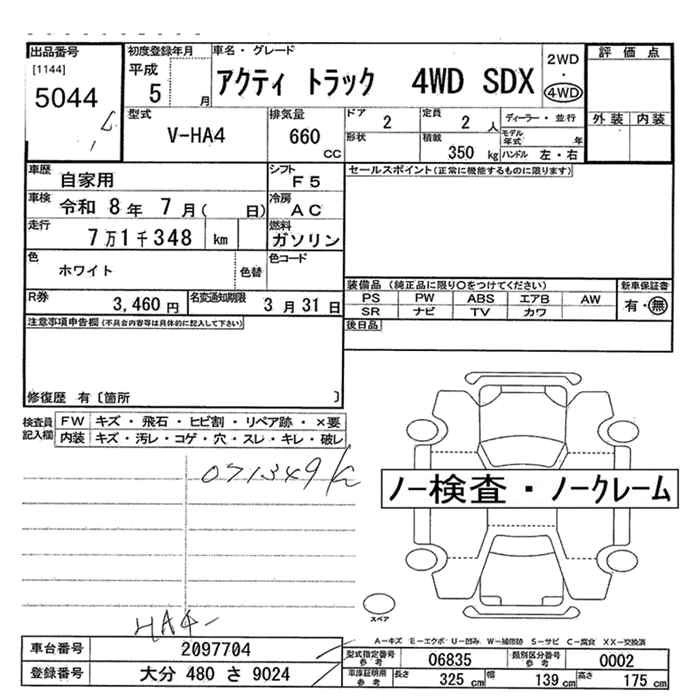 出品番号 初度登録年月 車名・グレード 2WD・4WD 評価点
[1144] 平成 5 月 アクティ トラック 4WD SDX
5044
型式 排気量 ドア 2 定員 2 人 ディーラー・並行 外装 内装
V-HA4 660 CC 形状 積載 350 kg モデル年式 年
ハンドル 左・右
車歴 自家用 シフト F5 セールスポイント(正常に機能するものに限ります)
車検 令和 8 年 7 月( 日) 冷房 AC
走行 7万1千348 km 燃料 ガソリン
色 ホワイト 色替 色コード
装備品(純正品に限り○をつけてください) 新車保証書
R券 3,460 円 名変通知期限 3 月 31 日 PS PW ABS エアB AW 有・無
SR ナビ TV カワ
注意事項申告欄(不具合内容等は具体的に記入して下さい) 後日品
修復歴 有〔箇所 〕
検査員記入欄 FW キズ・飛石・ヒビ割・リペア跡・×要
内装 キズ・汚レ・コゲ・穴・スレ・キレ・破レ
071349
ノー検査・ノークレーム
スペア
HA4-
A-キズ E-エクボ U-凹み W-補修跡 S-サビ C-腐食 XX-交換済
車台番号 2097704 型式指定番号 参考 06835 類別区分番号 参考 0002
登録番号 大分 480 さ 9024 車庫証明用 参考 長さ 325 cm 幅 139 cm 高さ 175 cm